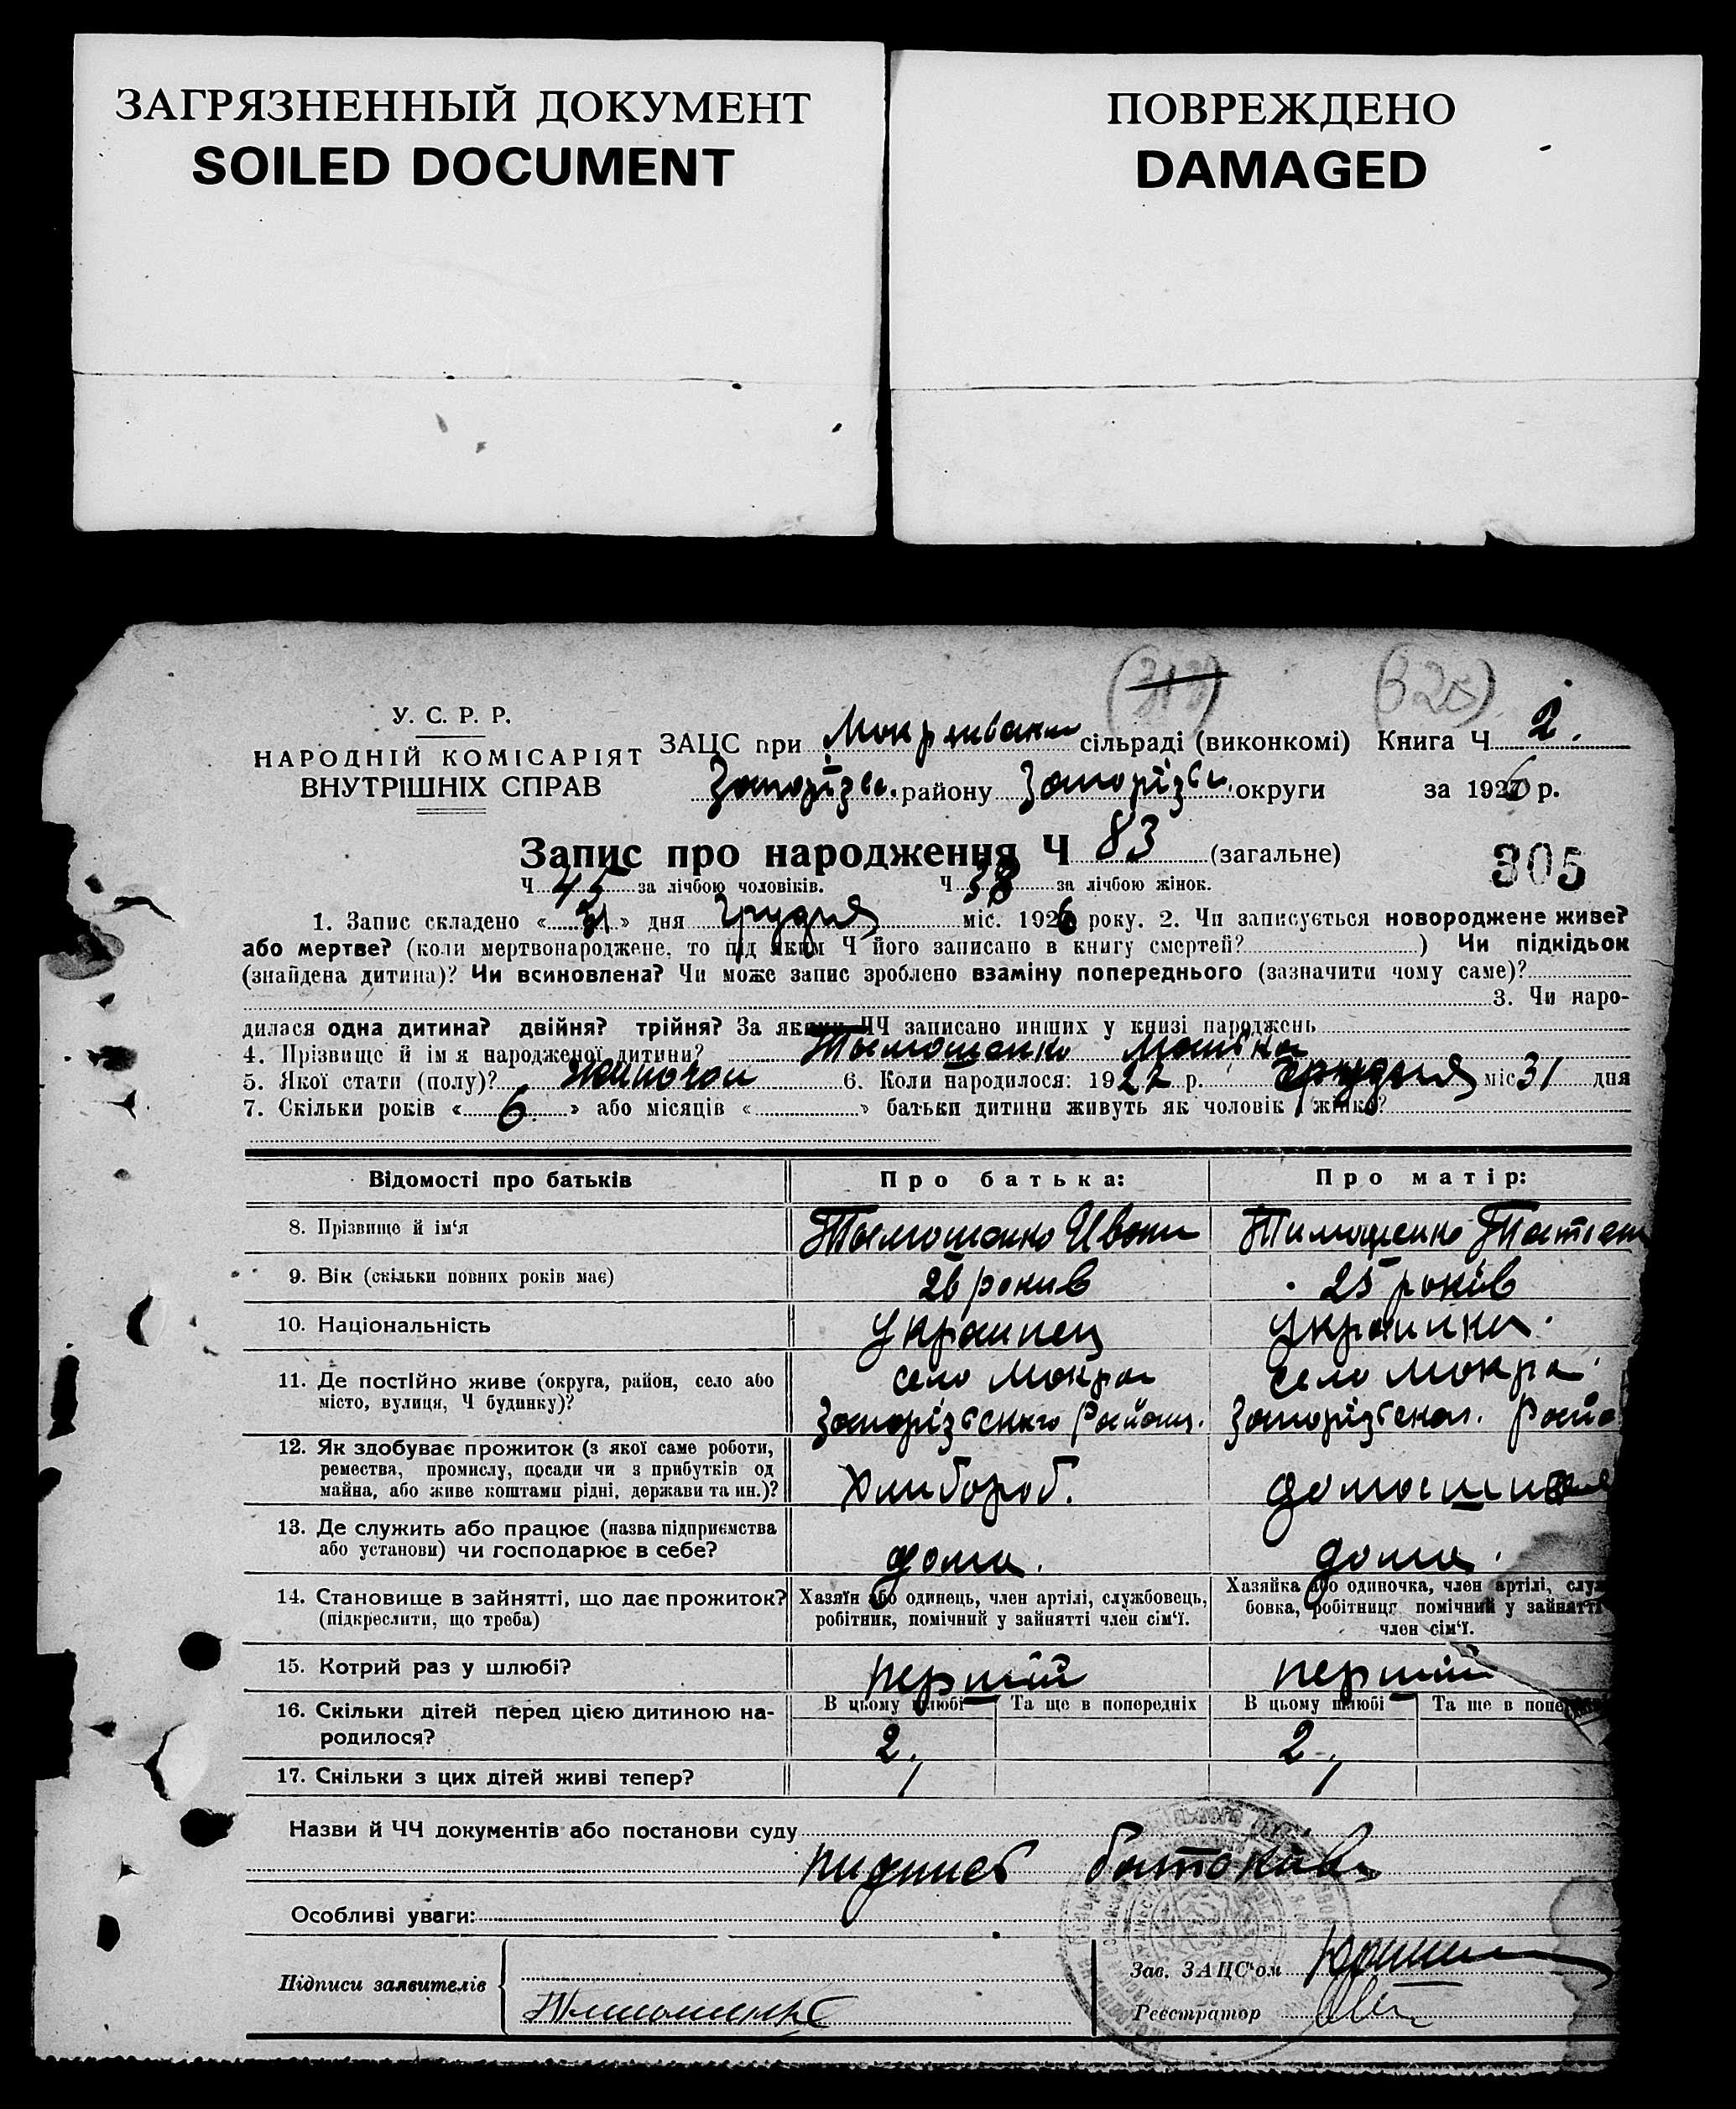 ЗАГРЯЗНЕННЫЙ ДОКУМЕНТ
SOILED DOCUMENT
ПОВРЕЖДЕНО
DAMAGED
У. С. Р. Р.
НАРОДНІЙ КОМІСАРІЯТ
ВНУТРІШНІХ СПРАВ
ЗАЦС при сільраді (виконкомі) Книга Ч 2.
району округи за 1926 р.
Запис про народження Ч 83 (загальне)
305
Ч 45 за лічбою чоловіків. Ч 38 за лічбою жінок.
1. Запис складено « 31 » дня грудня міс. 1926 року. 2. Чи записується новороджене живе?
або мертве? (коли мертвонароджене, то під яким Ч його записано в книгу смертей? ) Чи підкідьок
(знайдена дитина)? Чи всиновлена? Чи може запис зроблено взаміну попереднього (зазначити чому саме)?
3. Чи наро-
дилася одна дитина? двійня? трійня? За якими ЧЧ записано инших у книзі народжень
4. Прізвище й імя народженої дитини? Тымошенко
5. Якої статі (полу)? 6. Коли народилося: 1922 р. грудня міс 31 дня
7. Скільки років « 6 » або місяців « » батьки дитини живуть як чоловік і жінка?
Відомості про батьків Про батька: Про матір:
8. Прізвище й ім'я Тымошенко Иван Тимошенко
9. Вік (скільки повних років має) 26 рокив 25 років
10. Національність Украинец Украинка.
11. Де постійно живе (округа, район, село або
місто, вулиця, Ч будинку)?
село Мокра село Мокра
Запорізського Району.
12. Як здобуває прожиток (з якої саме роботи,
ремества, промислу, посади чи з прибутків од
майна, або живе коштами рідні, держави та ин.)?
Хлибороб.
13. Де служить або працює (назва підприємства
або установи) чи господарює в себе?
дома. дома.
14. Становище в зайнятті, що дає прожиток?
(підкреслити, що треба)
Хазяїн або одинець, член артілі, службовець,
робітник, помічний у зайнятті член сім'ї.
Хазяйка або одиночка, член артілі,
бовка, робітниця помічний у зайнятті
член сім'ї.
15. Котрий раз у шлюбі? перший перший
16. Скільки дітей перед цією дитиною на-
родилося?
В цьому шлюбі Та ще в попередніх В цьому шлюбі Та ще в
2 2
17. Скільки з цих дітей живі тепер? 1 1
Назви й ЧЧ документів або постанови суду
пидпис батоків
Особливі уваги:
Підписи заявителів
Зав. ЗАЦС'ом
Реєстратор